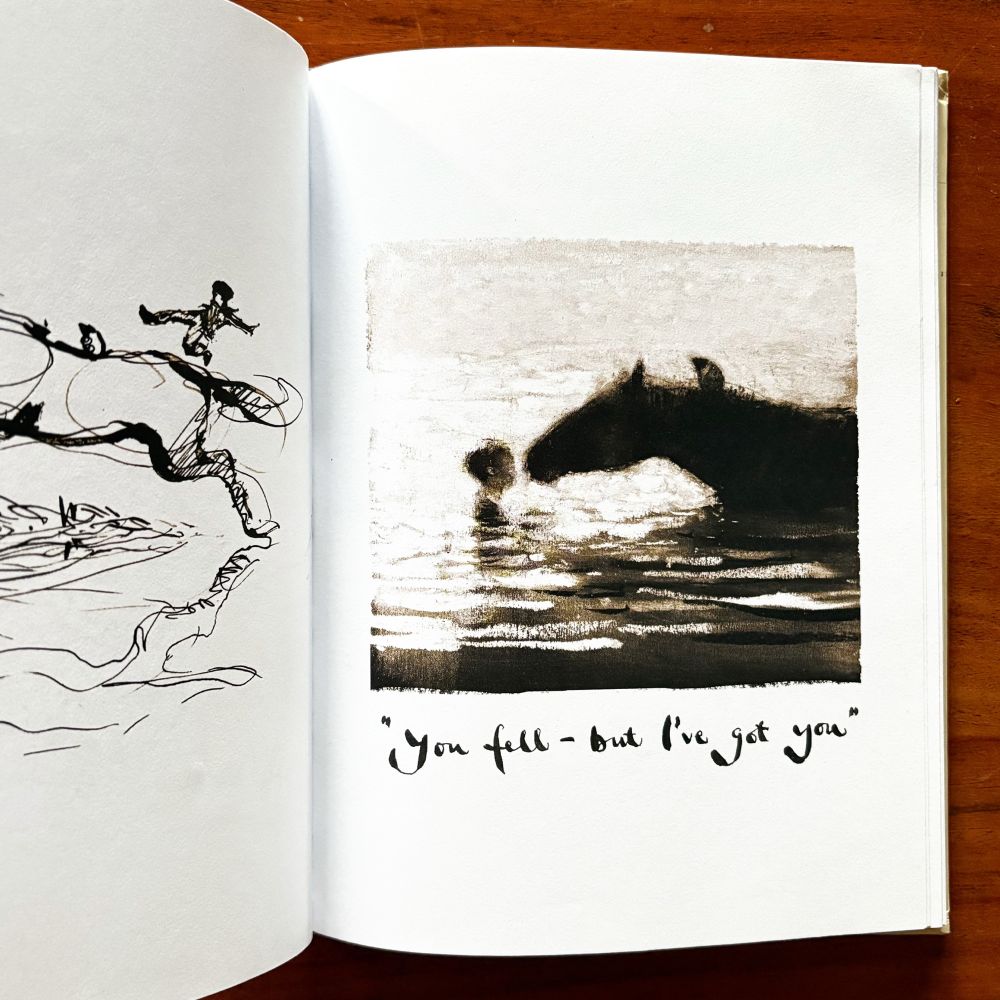 "You fell - but I've got you"